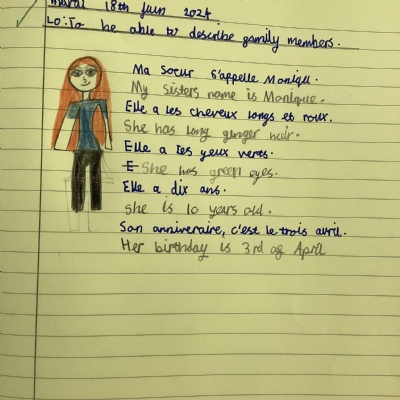 mardi 18th juin 2024.
LO: To be able to describe family members.
Ma Soeur s'appelle Monique.
My sisters name is Monique.
Elle a les cheveux longs et roux.
She has long ginger hair.
Elle a les yeux verts.
E She has green eyes.
Elle a dix ans.
She is 10 years old.
Son anniveraire, c'est le trois avril.
Her birthday is 3rd of April